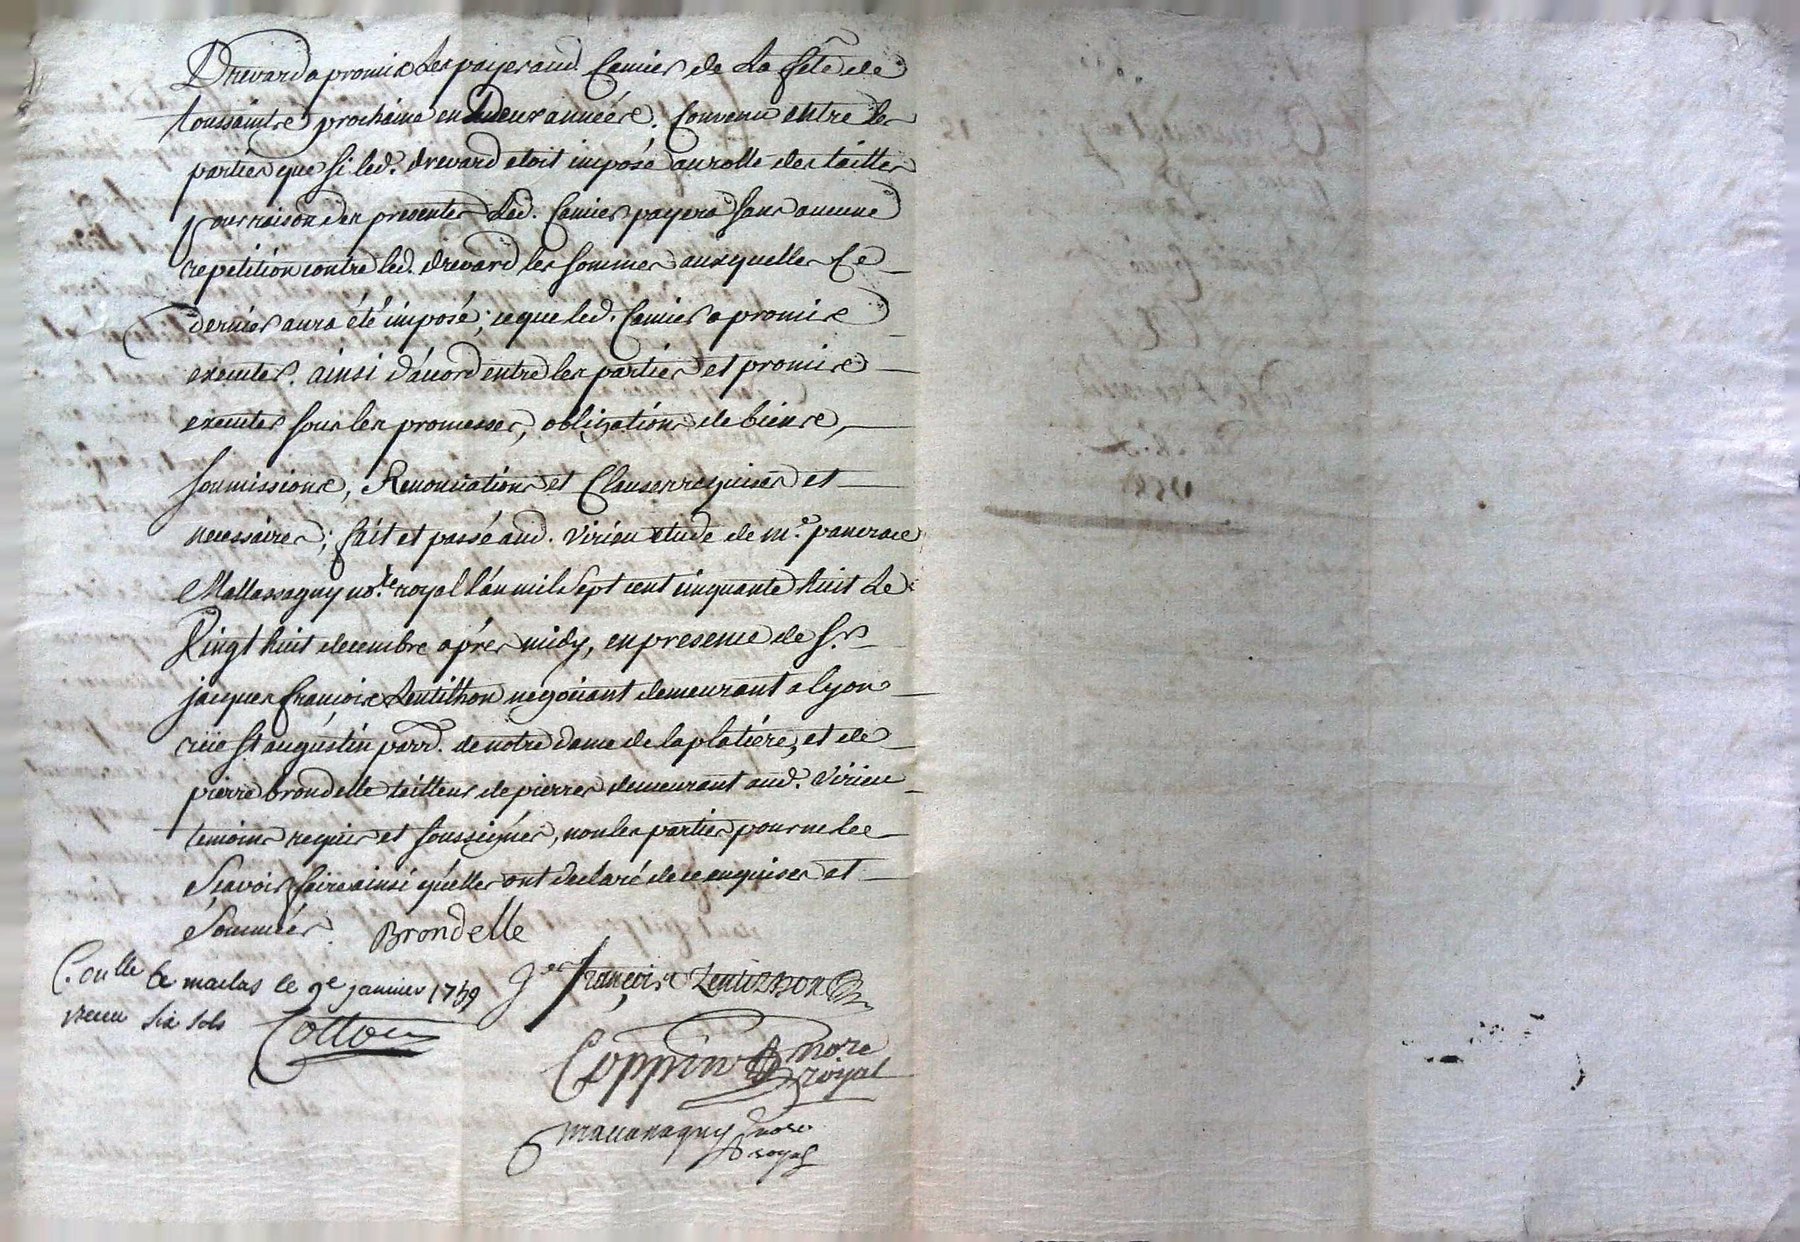 Drevard a promis les payer aud. Camier de La fête de
toussaints prochaine en Deux années. Convenu entre les
parties que si led. drevard etoit imposé au rolle des tailles
pour raison des presentes Led. Camier payera sans aucune
repetition contre led. drevard les sommes auxquelles Ce
dernier aura été imposé; ce que led. Camier a promis
executer. ainsi d'acord entre les parties et promis
executer sous les promesses, obligations de biens,
soumissions, Renonciations et Clauses requises et
necessaires; fait et passé aud. Virieu etude de me. pancrace
Mallassagny nore. royal l'an mil Sept cent cinquante huit Le
Vingt huit decembre aprés midy, en presence de Sr.
jacques françois Lentilhon negociant demeurant a lyon
rüe St augustin parr. de notre dame de la platiére, et de
pierre brondelle tailleur de pierres demeurant aud. Virieu
temoins requis et soussignés, non les parties pour ne le
Sçavoir faire ainsi qu'elles ont declaré de ce enquises et
Sommées. Brondelle
C. oulle a maclas le 9e janvier 1759
recu six sols
Jes françois Lentilhon
Cotton
Coppin nore
royal
nore
royal